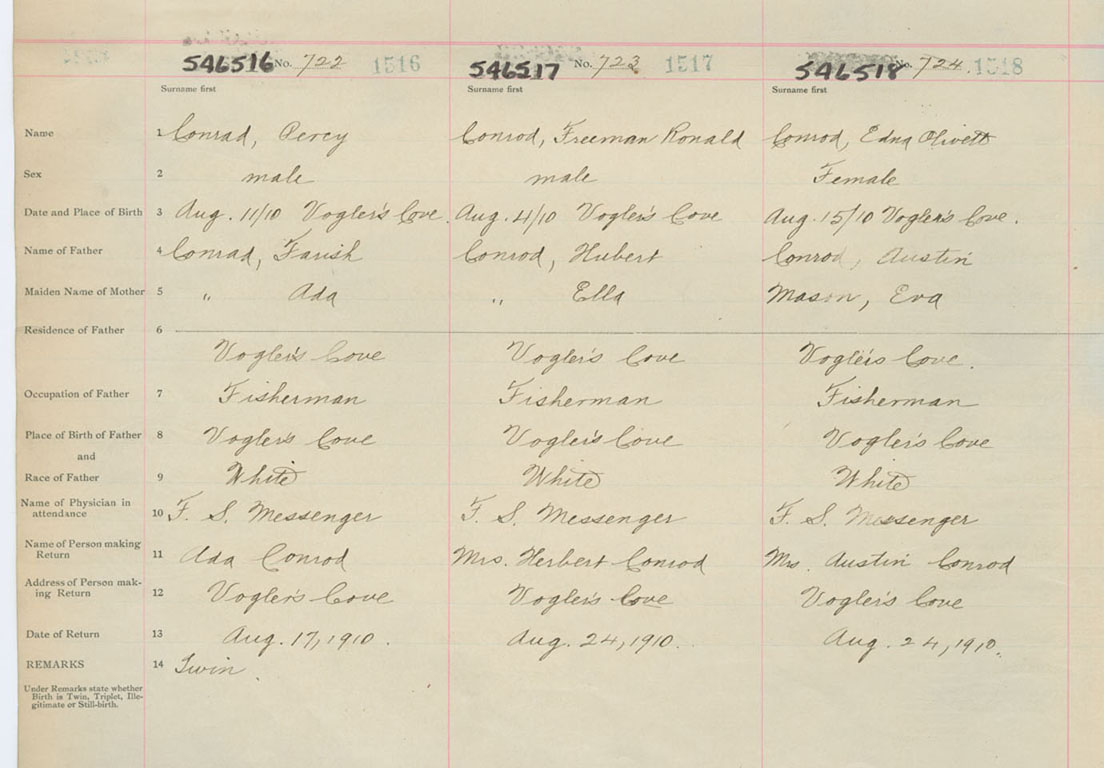 546516 No. 722 1516 546517 No. 723 1517 546518 No. 724 1518
Surname first Surname first Surname first
Name 1 Conrad, Percy Conrod, Freeman Ronald Conrod, Edna Olivett
Sex 2 male male Female
Date and Place of Birth 3 Aug. 11/10 Vogler's Cove Aug. 4/10 Vogler's Cove Aug. 15/10 Vogler's Cove.
Name of Father 4 Conrad, Farish Conrod, Hubert Conrod, Austin
Maiden Name of Mother 5 " Ada " Ella Mason, Eva
Residence of Father 6
Vogler's Cove Vogler's Cove Vogler's Cove.
Occupation of Father 7 Fisherman Fisherman Fisherman
Place of Birth of Father 8 Vogler's Cove Vogler's Cove Vogler's Cove
and
Race of Father 9 White White White
Name of Physician in
attendance 10 F. S. Messenger F. S. Messenger F. S. Messenger
Name of Person making
Return 11 Ada Conrod Mrs. Herbert Conrod Mrs. Austin Conrod
Address of Person mak-
ing Return 12 Vogler's Cove Vogler's Cove Vogler's Cove
Date of Return 13 Aug. 17, 1910. Aug. 24, 1910. Aug. 24, 1910.
REMARKS 14 Twin.
Under Remarks state whether
Birth is Twin, Triplet, Ille-
gitimate or Still-birth.